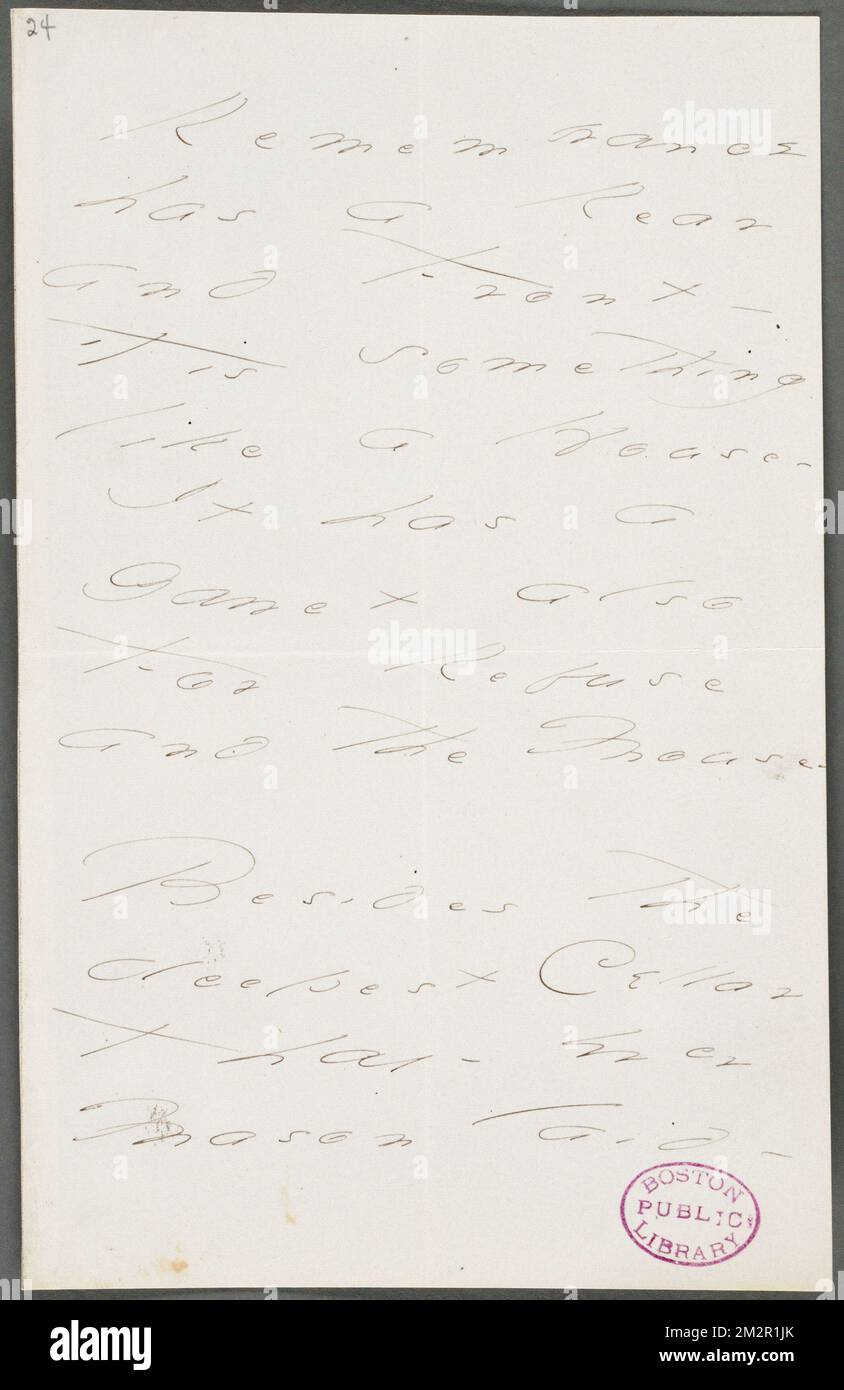 24
Remembrance
has a Rear
and Front -
'Tis Something
like a House -
It has a
Garret also
For Refuse
and the Mouse -
Besides the
deepest Cellar
That ever
Mason laid -
BOSTON
PUBLIC
LIBRARY
alamy
Image ID: 2M2R1JK
www.alamy.com